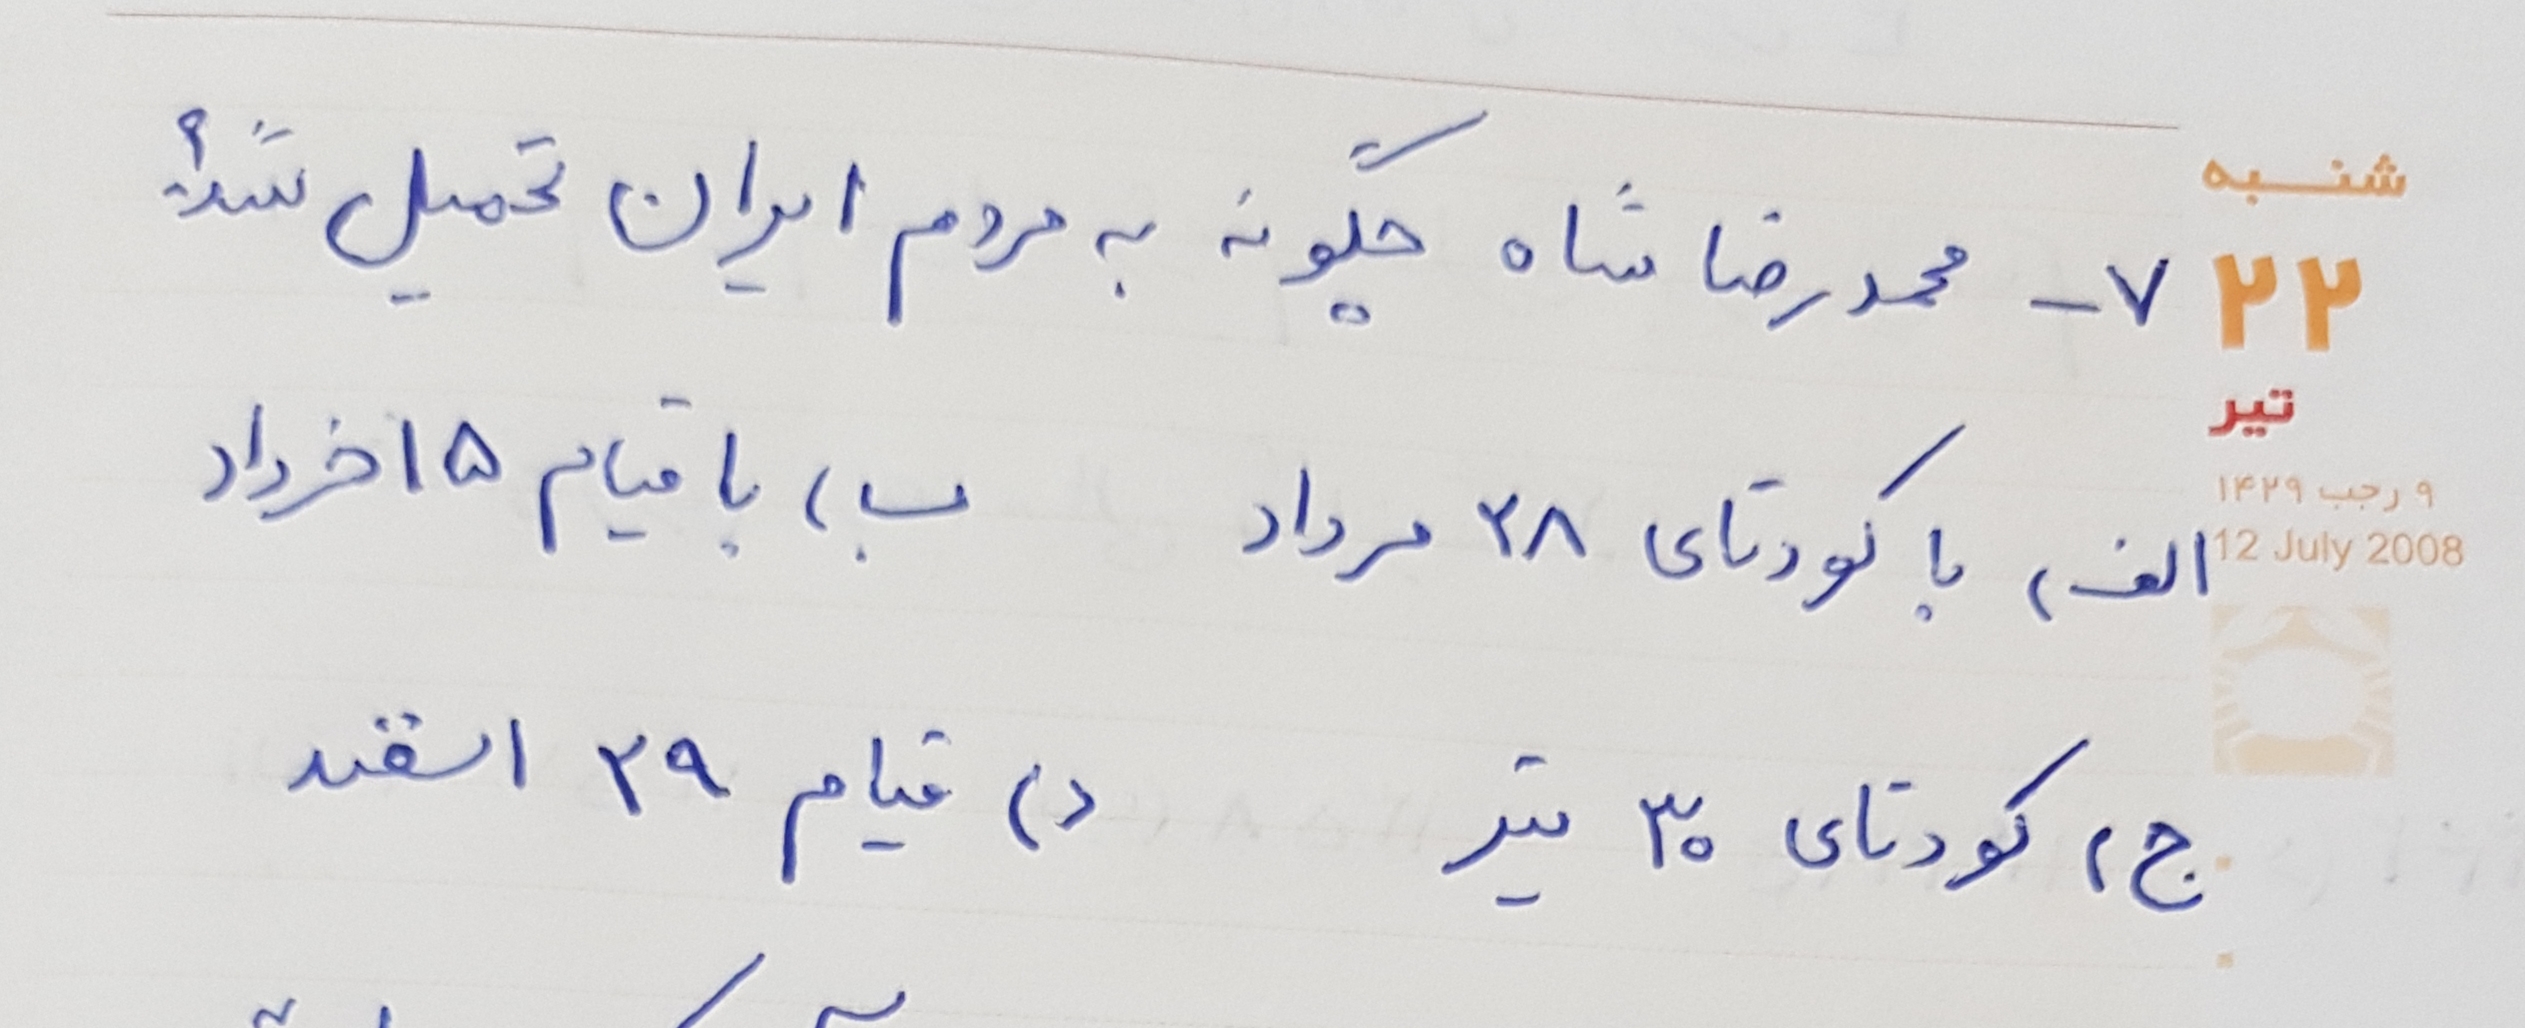 شنبه
۲۲
تیر
۹ رجب ۱۴۲۹
12 July 2008
۷- محمدرضا شاه چگونه به مردم ایران تحمیل شد؟
الف) با کودتای ۲۸ مرداد ب) با قیام ۱۵ خرداد
ج) کودتای ۳۰ تیر د) قیام ۲۹ اسفند